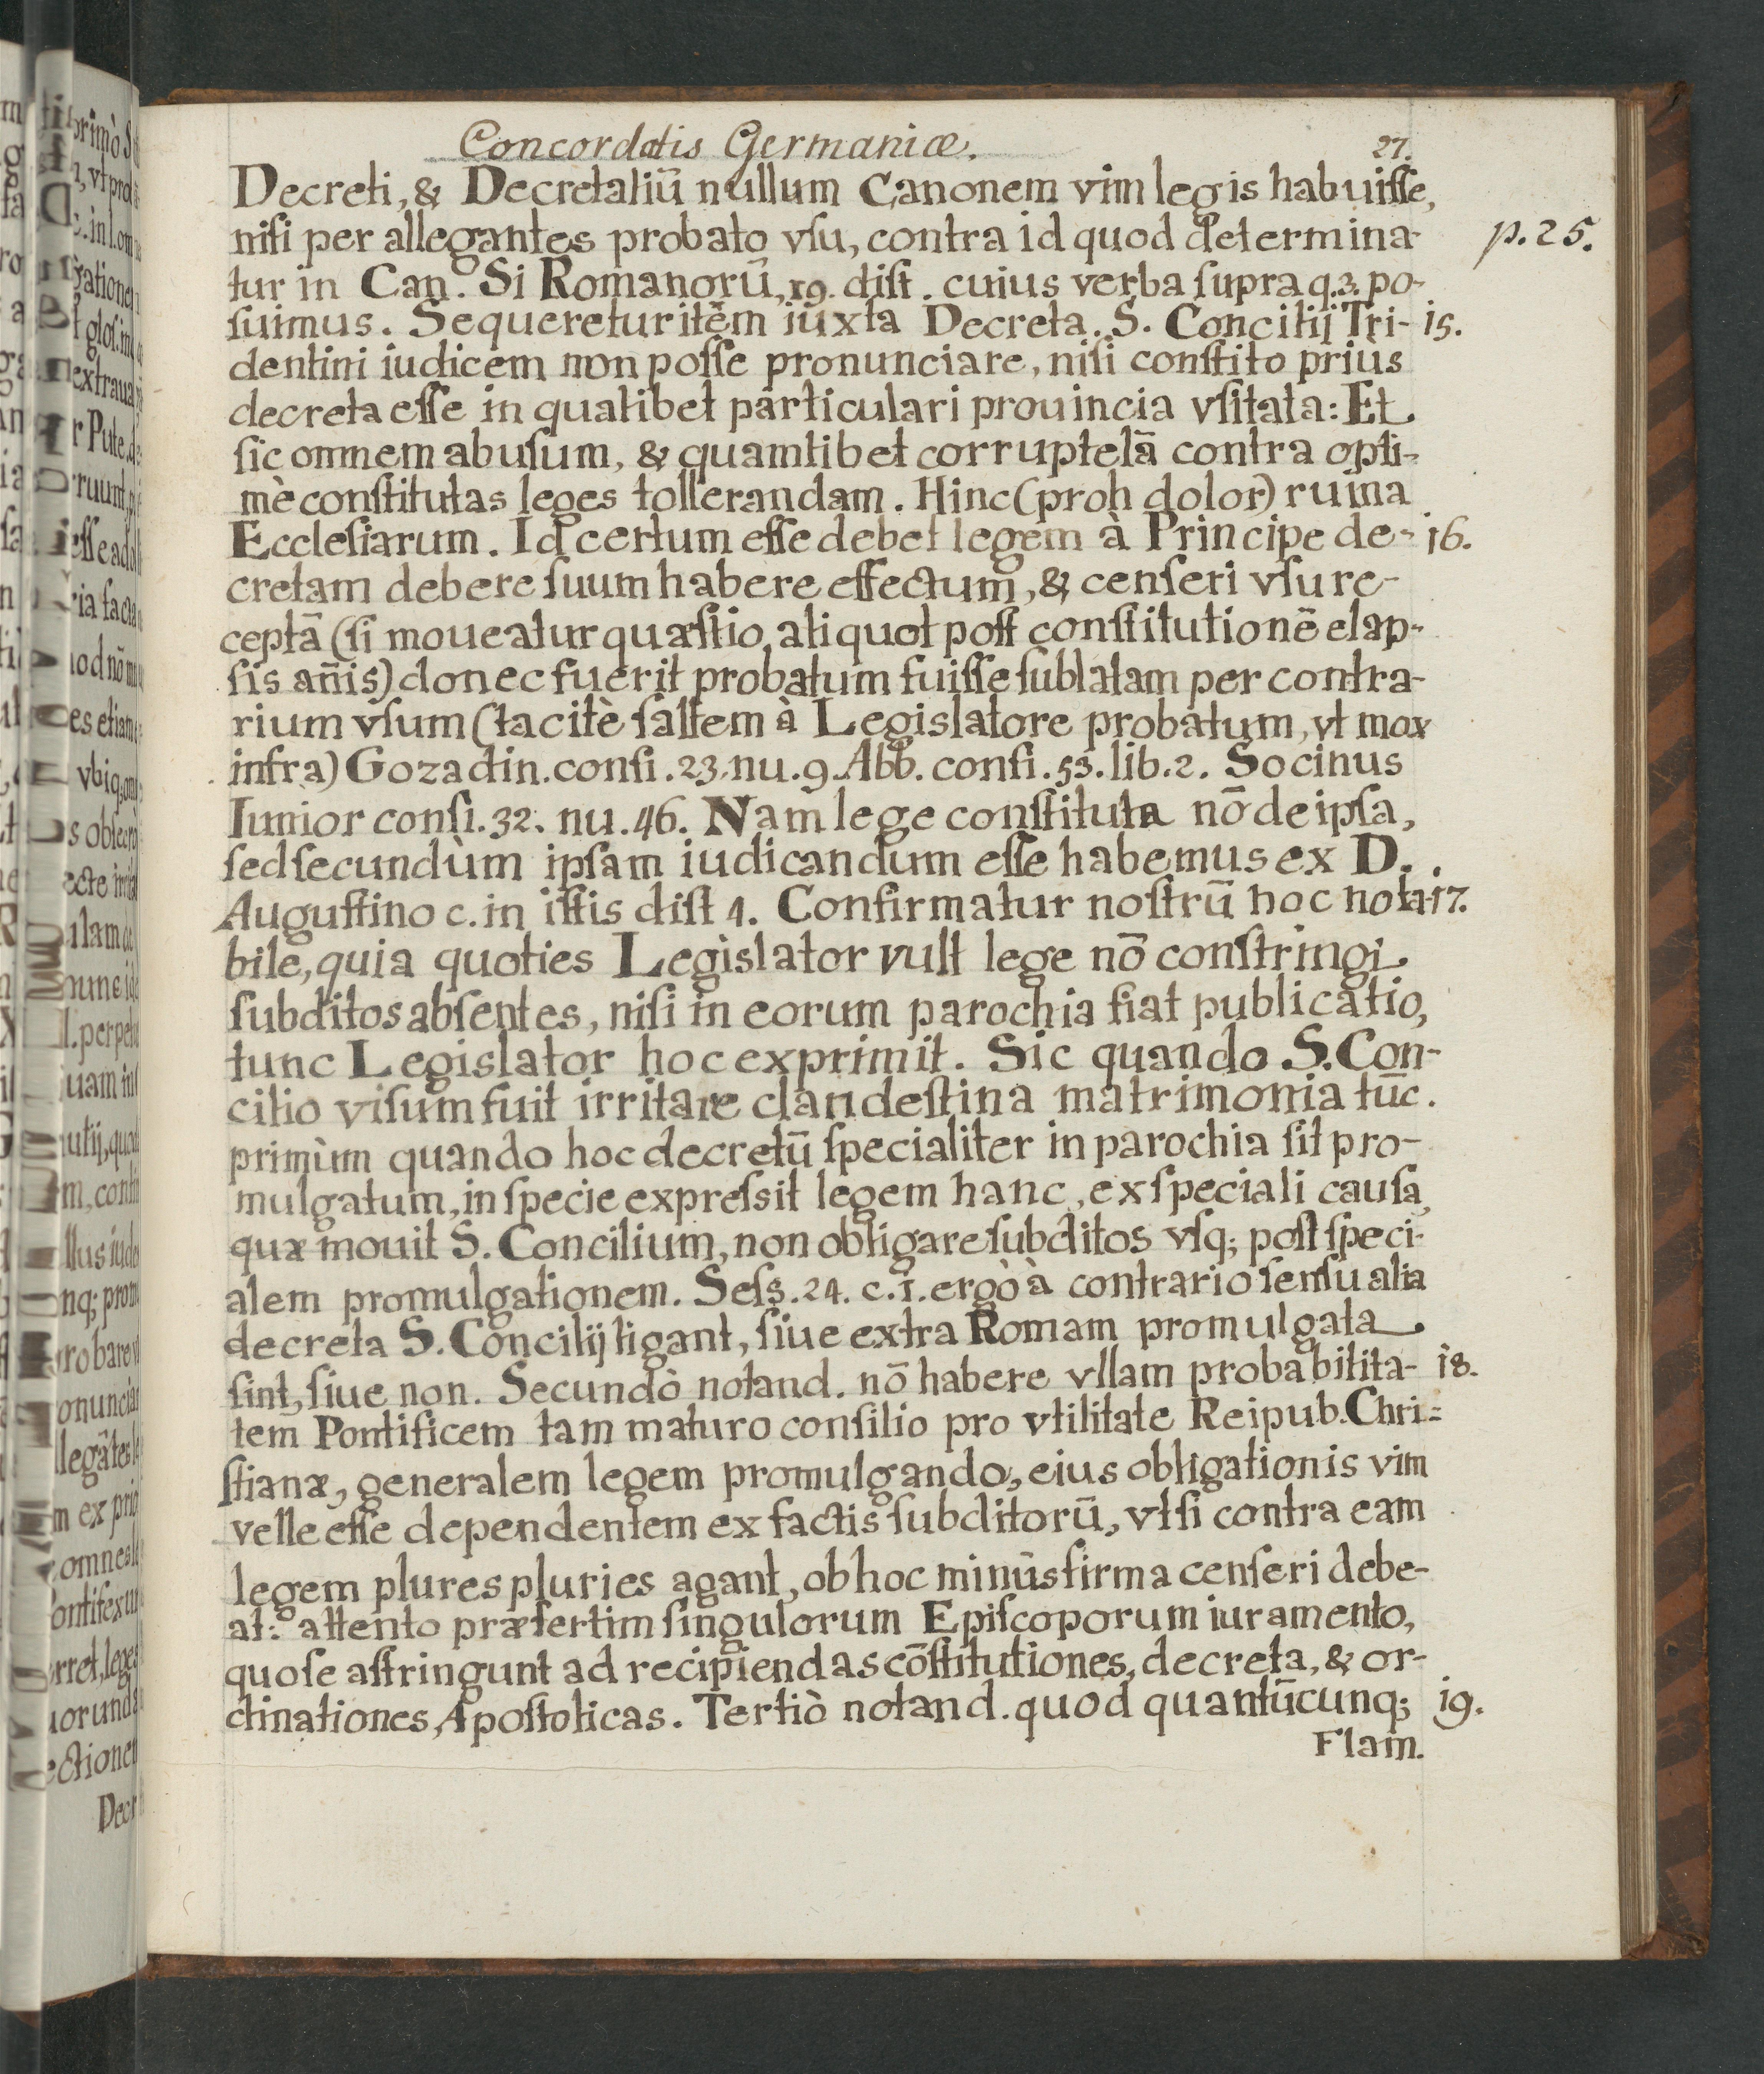 Concordatis Germaniæ. 27.
Decreti, & Decretaliū nullum Canonem vim legis habuiſſe,
niſi per allegantes probato vſu, contra id quod determina- p. 25.
tur in Can. Si Romanorū, 19. diſt. cuius verba ſupra q.3. po-
ſuimus. Sequeretur itēm iuxta Decreta. S. Concilij Tri- 15.
dentini iudicem non poſſe pronunciare, niſi conſtito priùs
decreta eſſe in qualibet particulari prouincia vſitata: Et
ſic omnem abuſum, & quamlibet corruptelā contra opti-
mè conſtitutas leges tollerandam. Hinc (proh dolor) ruina
Eccleſiarum. Id certum eſſe debet legem à Principe de- 16.
cretam debere ſuum habere effectum, & cenſeri vſu re-
ceptā (ſi moueatur quæſtio, aliquot poſt conſtitutionē elap-
ſis an̄is) donec fuerit probatum fuiſſe ſublatam per contra-
rium vſum (tacitè ſaltem à Legislatore probatum, vt mox
infra) Gozadin. conſi. 23. nu. 9. Abb. conſi. 53. lib. 2. Socinus
Iunior conſi. 32. nu. 46. Nam lege conſtituta nō de ipſa,
ſed ſecundùm ipſam iudicandum eſſe habemus ex D.
Auguſtino c. in iſtis diſt 4. Confirmatur noſtrū hoc nota- 17.
bile, quia quoties Legislator vult lege nō conſtringi
ſubditos abſentes, niſi in eorum parochia fiat publicatio,
tunc Legislator hoc exprimit. Sic quando S. Con-
cilio viſum fuit irritare clandeſtina matrimonia tūc.
primùm quando hoc decretū ſpecialiter in parochia ſit pro-
mulgatum, in ſpecie expreſsit legem hanc, ex ſpeciali cauſa,
quæ mouit S. Concilium, non obligare ſubditos vſq; poſt ſpeci-
alem promulgationem. Seſs. 24. c. 1. ergò à contrario ſenſu alia
decreta S. Concilij ligant, ſiue extra Romam promulgata
ſint, ſiue non. Secundò notand. nō habere vllam probabilita- 18.
tem Pontificem tam maturo conſilio pro vtilitate Reipub. Chri-
ſtianæ, generalem legem promulgando, eius obligationis vim
velle eſſe dependentem ex factis ſubditorū, vt ſi contra eam
legem plures pluries agant, ob hoc minùs firma cenſeri debe-
at: attento præſertim ſingulorum Epiſcoporum iuramento,
quo ſe aſtringunt ad recipiendas cōſtitutiones, decreta, & or-
dinationes, Apoſtolicas. Tertiò notand. quod quantūcunq; 19.
Flam.